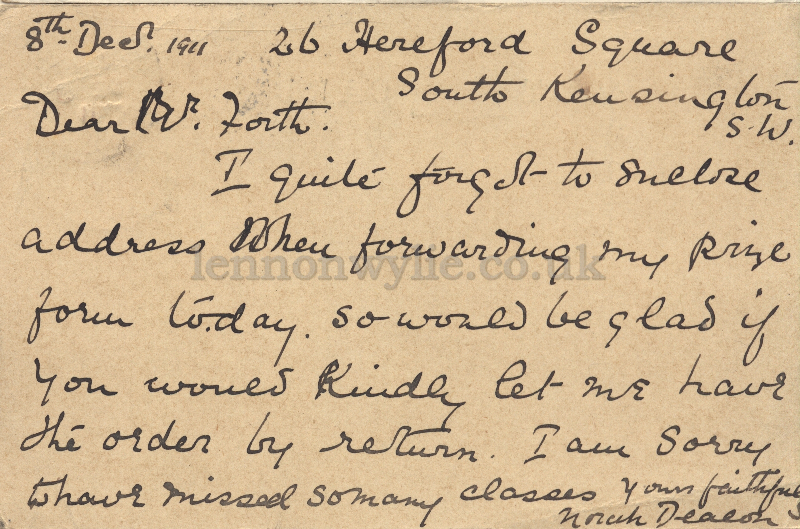 8th Decr. 1911 26 Hereford Square
South Kensington
S.W.
Dear Mr. Forth.
I quite forgot to enclose
address When forwarding my prize
lennonwylie.co.uk
form to.day. so would be glad if
you would Kindly let me have
the order by return. I am Sorry
to have missed so many classes Yours faithful
Norah Deacon